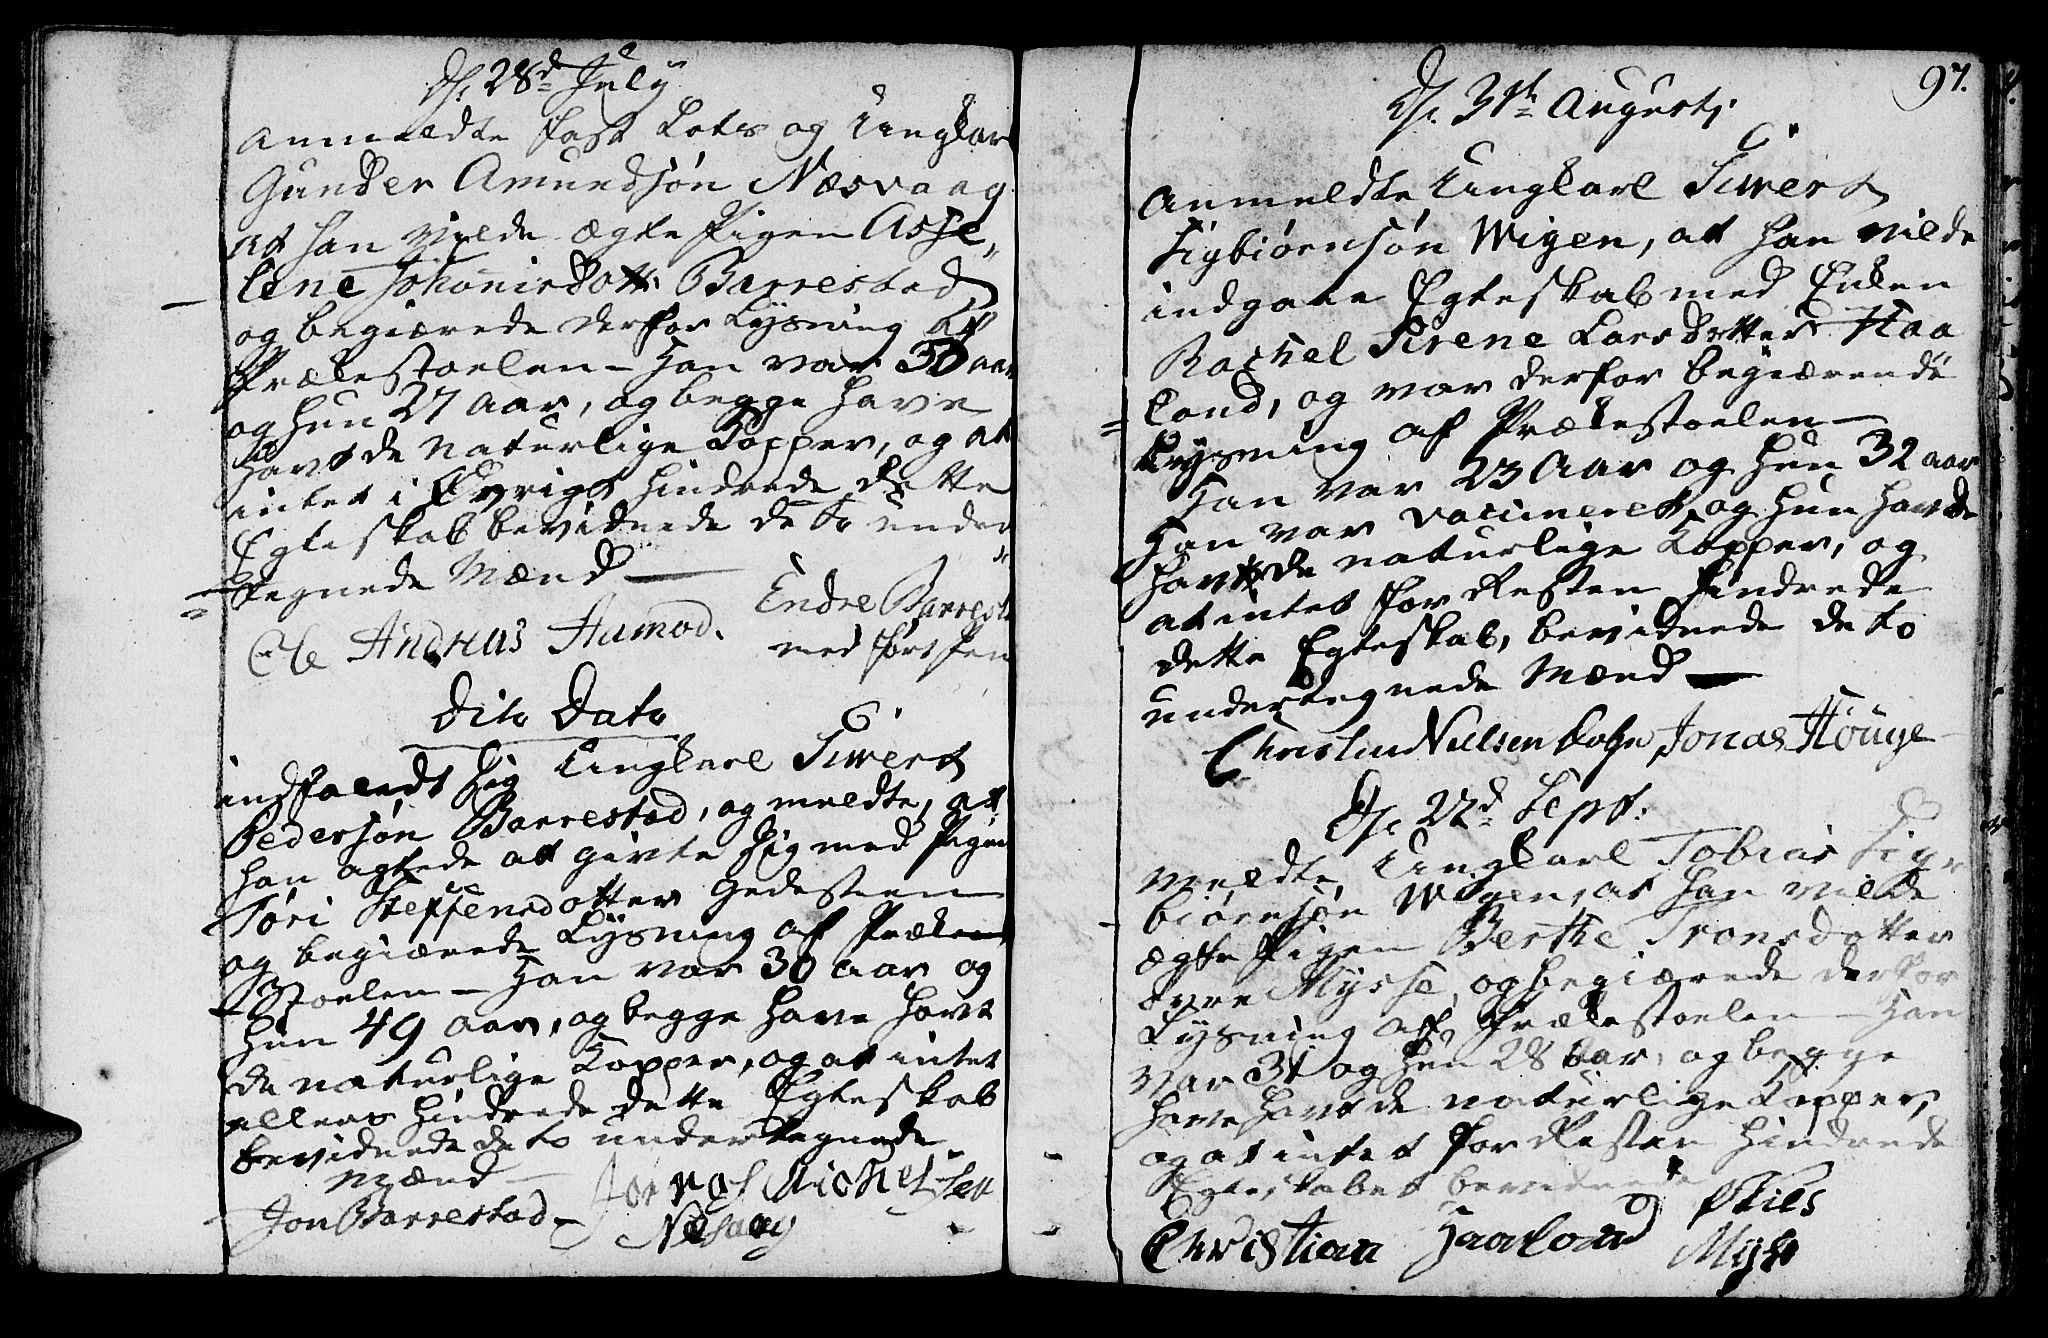 Ds. 28d July
Anmeldte fast Lots og Ungkarl
Gunder Amundsøn Næsvaag
at han vilde ægte Pigen Asse„
lene Johannisdott: Barrestad
og begiærede derfor Lysning af
Prækestoelen – Han var 30 aar
og hun 27 aar, og begge have
havt de naturlige Kopper, og at
intet i Øvrigt hindrede dette
Egteskab bevidnede de to under
tegnede Mænd —
Ole Andreas Aamod. Endre Barrest
med ført Pen
Dito Dato
indfandt sig Ungkarl Siwert
Pedersøn Barrestad, og meldte, at
han agtede at givte sig med Pigen
Tøri Steffensdotter Gedesteen
og begiærede Lysning af Præke
Stoelen – Han var 30 aar og
hun 49 aar, og begge have havt
de naturlige Kopper, og at intet
ellers hindrede dette Egteskab
bevidnede de to undertegnede
Mænd —
Jon Barrestad – Michelsen
Nesvaag
97.
Ds. 31th Augustj.
Anmeldte Ungkarl Siwert
Sigbiørnsøn Wigen, at han vilde
indgaae Egteskab med Enken
Rachel Sirene Larsdotter Haa
land, og var derfor begiærende
Lysning af Prækestoelen —
Han var 23 Aar og hun 32 aar
Han var vaccineret, og hun havde
havt de naturlige Kopper, og
at intet for Resten hindrede
dette Egteskab, bevidnede de to
undertegnede Mænd —
Christen Nielsen Jonas Høuge
Ds. 22d Sept:
Meldte Ungkarl Tobias Sig„
biørnsøn Wigen, at han vilde
ægte Pigen Berthe Tronsdotter
øvre Mysse, og begiærede derfor
Lysning af Prækestoelen – Han
var 31 og hun 28 Aar, og begge
have havt de naturlige Kopper,
og at intet for Resten hindrede
Egteskabet bevidnede
Christian Haaland Nils
Mysse